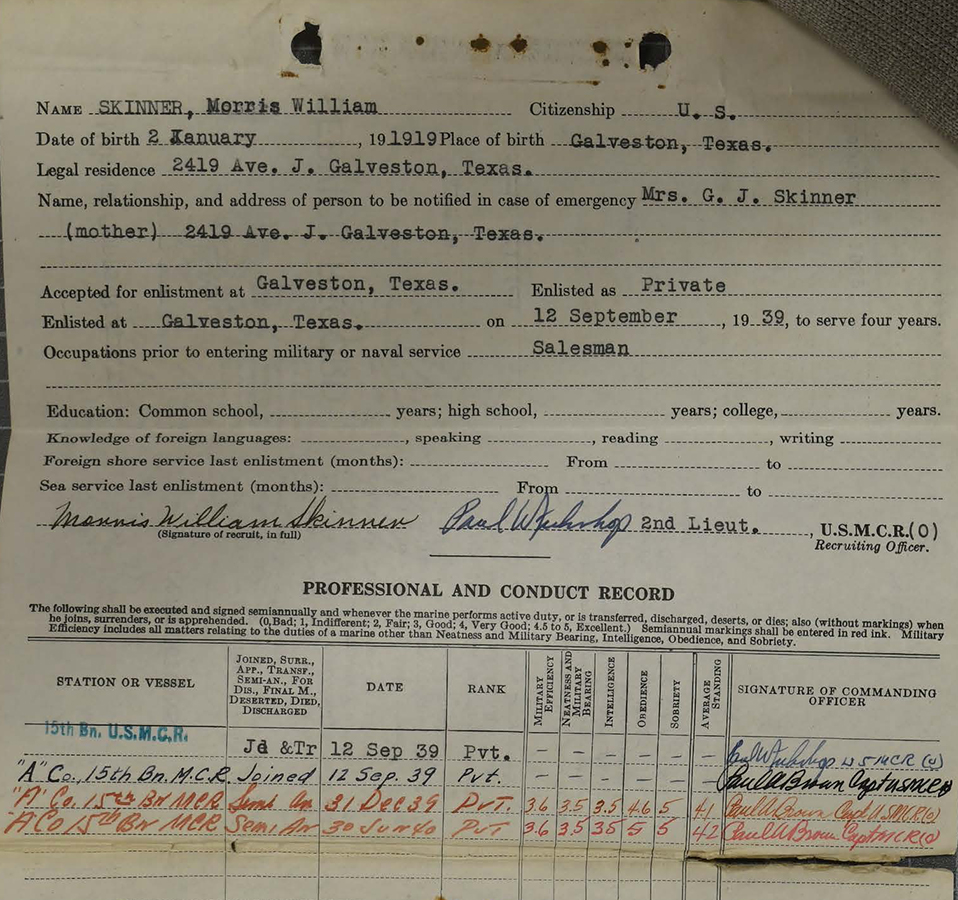 NAME SKINNER, Morris William Citizenship U. S.
Date of birth 2 Xanuary, 19 1919 Place of birth Galveston, Texas.
Legal residence 2419 Ave. J. Galveston, Texas.
Name, relationship, and address of person to be notified in case of emergency Mrs. G. J. Skinner
(mother) 2419 Ave. J. Galveston, Texas.
Accepted for enlistment at Galveston, Texas. Enlisted as Private
Enlisted at Galveston, Texas. on 12 September, 19 39, to serve four years.
Occupations prior to entering military or naval service Salesman
Education: Common school, years; high school, years; college, years.
Knowledge of foreign languages: , speaking , reading , writing
Foreign shore service last enlistment (months): From to
Sea service last enlistment (months): From to
Morris William Skinner Paul W 2nd Lieut., U.S.M.C.R.(O)
(Signature of recruit, in full) Recruiting Officer.
PROFESSIONAL AND CONDUCT RECORD
The following shall be executed and signed semiannually and whenever the marine performs active duty, or is transferred, discharged, deserts, or dies; also (without markings) when
he joins, surrenders, or is apprehended. (0, Bad; 1, Indifferent; 2, Fair; 3, Good; 4, Very Good; 4.5 to 5, Excellent.) Semiannual markings shall be entered in red ink. Military
Efficiency includes all matters relating to the duties of a marine other than Neatness and Military Bearing, Intelligence, Obedience, and Sobriety.
STATION OR VESSEL JOINED, SURR., APP., TRANSF., SEMI-AN., FOR DIS., FINAL M., DESERTED, DIED, DISCHARGED DATE RANK MILITARY EFFICIENCY NEATNESS AND MILITARY BEARING INTELLIGENCE OBEDIENCE SOBRIETY AVERAGE STANDING SIGNATURE OF COMMANDING OFFICER
15th Bn. U.S.M.C.R. Jd &Tr 12 Sep 39 Pvt. — — — — — — Paul W USMCR (O)
"A" Co., 15th Bn. M.C.R. Joined 12 Sep. 39 Pvt. — — — — — — Paul A Brown Capt USMCR
"A" Co. 15th Bn MCR Semi An 31 Dec 39 PVT. 3.6 3.5 3.5 4.6 5 4.1 Paul A Brown Capt USMCR(O)
A Co 15th Bn MCR Semi An 30 Jun 40 PVT 3.6 3.5 3.5 5 5 4.2 Paul A Brown Capt MCR(O)